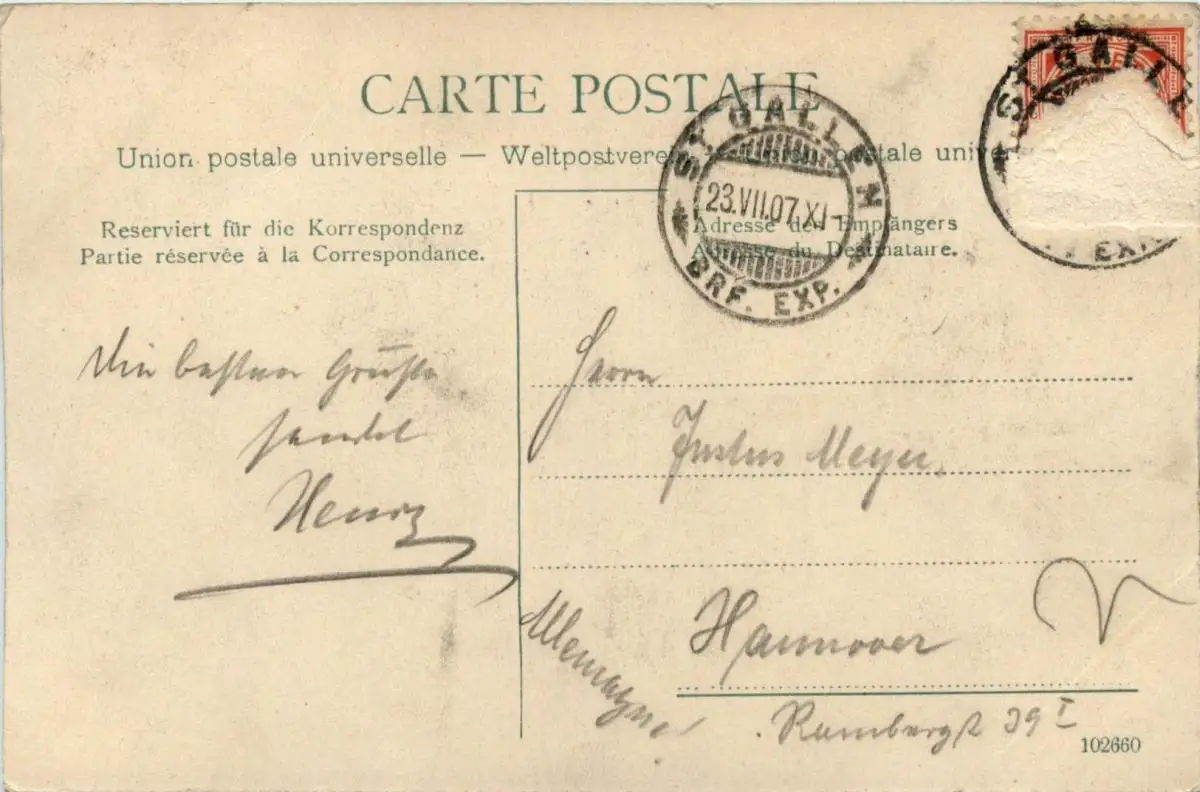 CARTE POSTALE
Union postale universelle — Weltpostverein postale univers
Reserviert für die Korrespondenz
Partie réservée à la Correspondance.
Adresse des Empfängers
Adresse du Destinataire.
ST. GALLEN
23.VII.07.XI-
BRF. EXP.
ST. GALLE
EXP.
Die besten Grüße
sendet
Henry
Herrn
Justus Meyer.
Hannover
Allemagne
Rambergst 39 I
102660